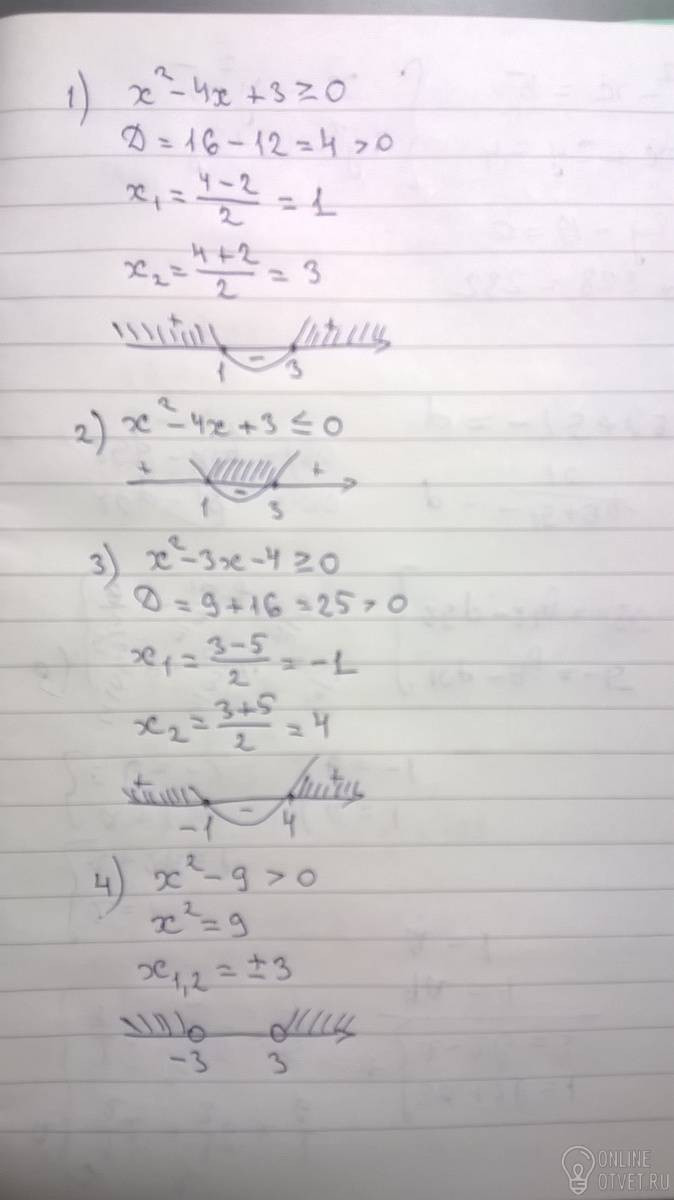 1) x² - 4x + 3 ≥ 0
D = 16 - 12 = 4 > 0
x₁ = (4-2)/2 = 1
x₂ = (4+2)/2 = 3
+ - +
1 3
2) x² - 4x + 3 ≤ 0
+ - +
1 3
3) x² - 3x - 4 ≥ 0
D = 9 + 16 = 25 > 0
x₁ = (3-5)/2 = -1
x₂ = (3+5)/2 = 4
+ - +
-1 4
4) x² - 9 > 0
x² = 9
x₁,₂ = ±3
-3 3
ONLINE
OTVET.RU